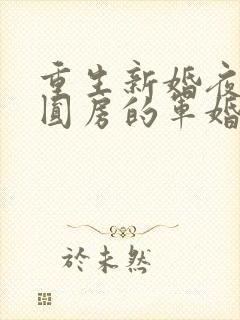 重生新婚夜
圆房的军婚
於未然